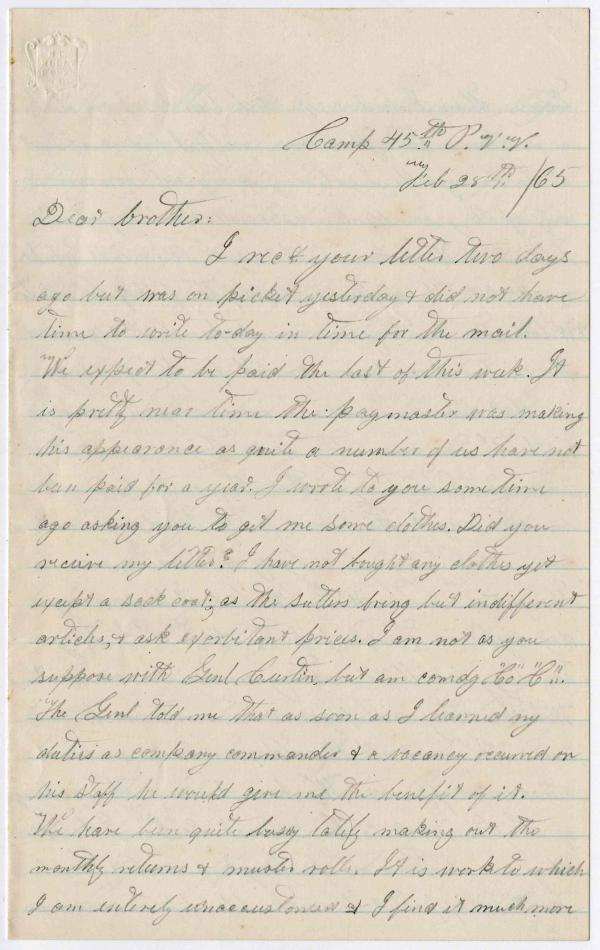 Camp 45th P. V. V.
Feb 28th /65
Dear brother:
I recd your letter two days
ago but was on picket yesterday & did not have
time to write to-day in time for the mail.
We expect to be paid the last of this week. It
is pretty near time the paymaster was making
his appearance as quite a number of us have not
been paid for a year. I wrote to you some time
ago asking you to get me some clothes. Did you
receive my letter? I have not bought any clothes yet
except a sack coat; as the sutlers bring but indifferent
articles, & ask exorbitant prices. I am not as you
suppose with Genl Curtin, but am comdg "Co" "H".
The Genl told me that as soon as I learned my
duties as company commander & a vacancy occurred on
his staff he would give me the benefit of it.
We have been quite busy making out the
monthly returns & muster rolls. It is work to which
I am entirely unaccustomed & I find it much more